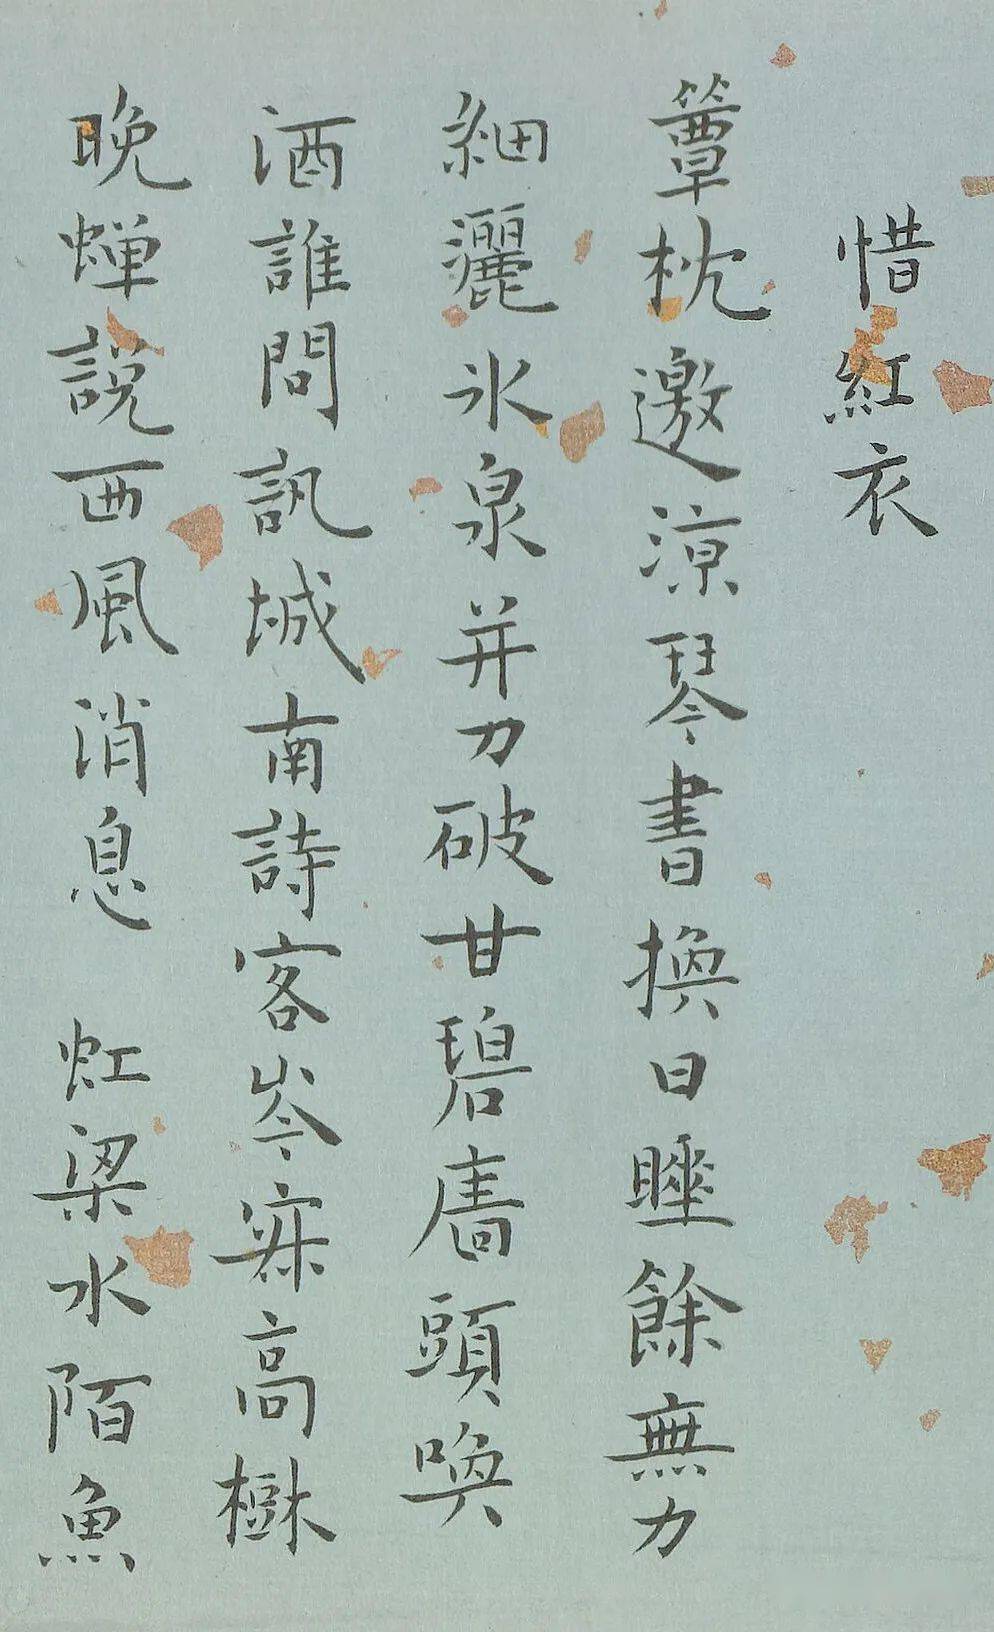 惜紅衣
簟枕邀涼琴書換日睡餘無力
細灑氷泉并刀破甘碧牆頭喚
酒誰問訊城南詩客岑寂高樹
晚蟬說西風消息 虹梁水陌魚